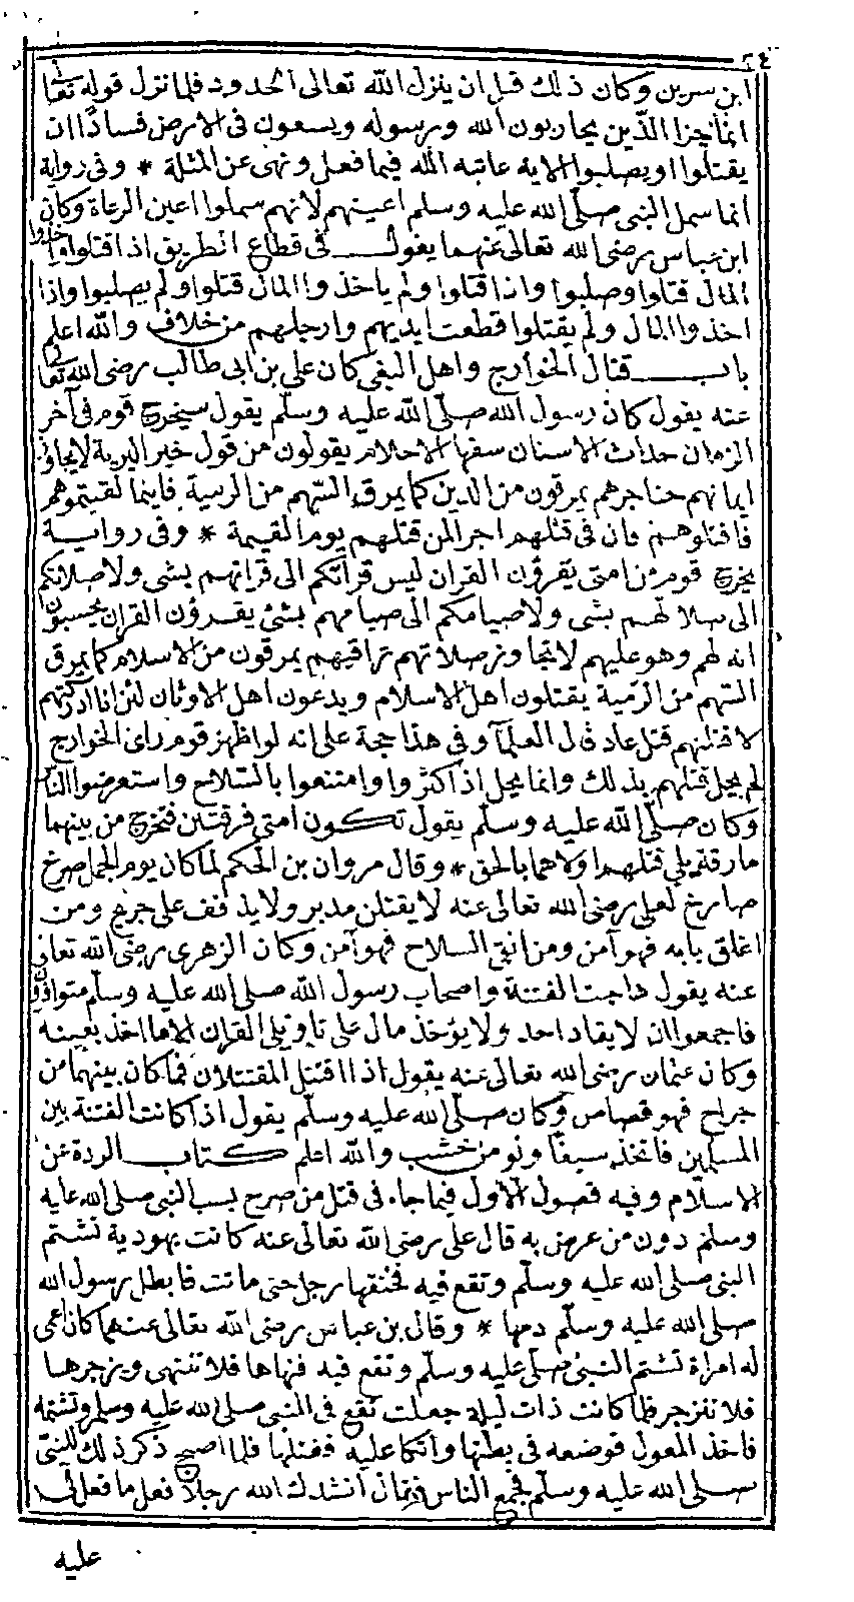 ٢٤
ابن سيرين وكان ذلك قبل ان ينزل الله تعالى الحدود فلما نزل قوله تعالى
انما جزا الذين يحاربون الله ورسوله ويسعون فى الارض فسادا ان
يقتلوا او يصلبوا الاية عاتبه الله فيما فعل ونهى عن المثلة * وفى رواية
انما سمل النبى صلى الله عليه وسلم اعينهم لانهم سملوا اعين الرعاة وكان
ابن عباس رضى الله تعالى عنهما يقول فى قطاع الطريق اذا قتلوا واخذوا
المال قتلوا وصلبوا واذا قتلوا ولم ياخذوا المال قتلوا ولم يصلبوا واذا
اخذوا المال ولم يقتلوا قطعت ايديهم وارجلهم من خلاف والله اعلم
باب قتال الخوارج واهل البغى كان على بن ابى طالب رضى الله تعالى
عنه يقول كان رسول الله صلى الله عليه وسلم يقول سيخرج قوم فى آخر
الزمان حداث الاسنان سفها الاحلام يقولون من قول خير البرية لا يجاوز
ايمانهم حناجرهم يمرقون من الدين كما يمرق السهم من الرمية فاينما لقيتموهم
فاقتلوهم فان فى قتلهم اجرا لمن قتلهم يوم القيمة * وفى رواية
يخرج قوم من امتى يقرؤن القران ليس قرآتكم الى قراتهم بشى ولا صلاتكم
الى صلاتهم بشى ولا صيامكم الى صيامهم بشئ يقرؤن القران يحسبون
انه لهم وهو عليهم لا يتجاوز صلاتهم تراقيهم يمرقون من الاسلام كما يمرق
السهم من الرمية يقتلون اهل الاسلام ويدعون اهل الاوثان لئن انا ادركتهم
لاقتلنهم قتل عاد قال العلمآ وفى هذا حجة على انه لو اظهر قوم راى الخوارج
لم يحل قتلهم بذلك وانما يحل اذا كثروا وامتنعوا بالسلاح واستعرضوا الناس
وكان صلى الله عليه وسلم يقول تكون امتى فرقتين فتخرج من بينهما
مارقة يلى قتلهم اولاهما بالحق * وقال مروان بن الحكم لما كان يوم الجمل صرخ
صارخ لعلى رضى الله تعالى عنه لا يقتلن مدبر ولا يذفف على جريح ومن
اغلق بابه فهو آمن ومن القى السلاح فهو آمن وكان الزهرى رضى الله تعالى
عنه يقول هاجت الفتنة واصحاب رسول الله صلى الله عليه وسلم متوافرون
فاجمعوا ان لا يقاد احد ولا يؤخذ مال على تاويل القران الا ما اخذ بعينه
وكان عثمان رضى الله تعالى عنه يقول اذا اقتتل المقتتلان فما كان بينهما من
جراح فهو قصاص وكان صلى الله عليه وسلم يقول اذا كانت الفتنة بين
المسلمين فاتخذ سيفا ولو من خشب والله اعلم كتاب الردة عن
الاسلام وفيه فصول الاول فيما جاء فى قتل من صرح بسب النبى صلى الله عليه
وسلم دون من عرض به قال على رضى الله تعالى عنه كانت يهودية تشتم
النبى صلى الله عليه وسلم وتقع فيه فخنقها رجل حتى ماتت فابطل رسول الله
صلى الله عليه وسلم دمها * وقال بن عباس رضى الله تعالى عنهما كان اعمى
له امراة تشتم النبى صلى عليه وسلم وتقع فيه فنهاها فلا تنتهى ويزجرها
فلا تنزجر فلما كانت ذات ليلة جعلت تقع فى النبى صلى الله عليه وسلم وتشتمه
فاخذ المعول فوضعه فى بطنها واتكا عليه فقتلها فلما اصبح ذكر ذلك للنبى
صلى الله عليه وسلم فجمع الناس فقال انشدك الله رجلا فعل ما فعل لى
عليه